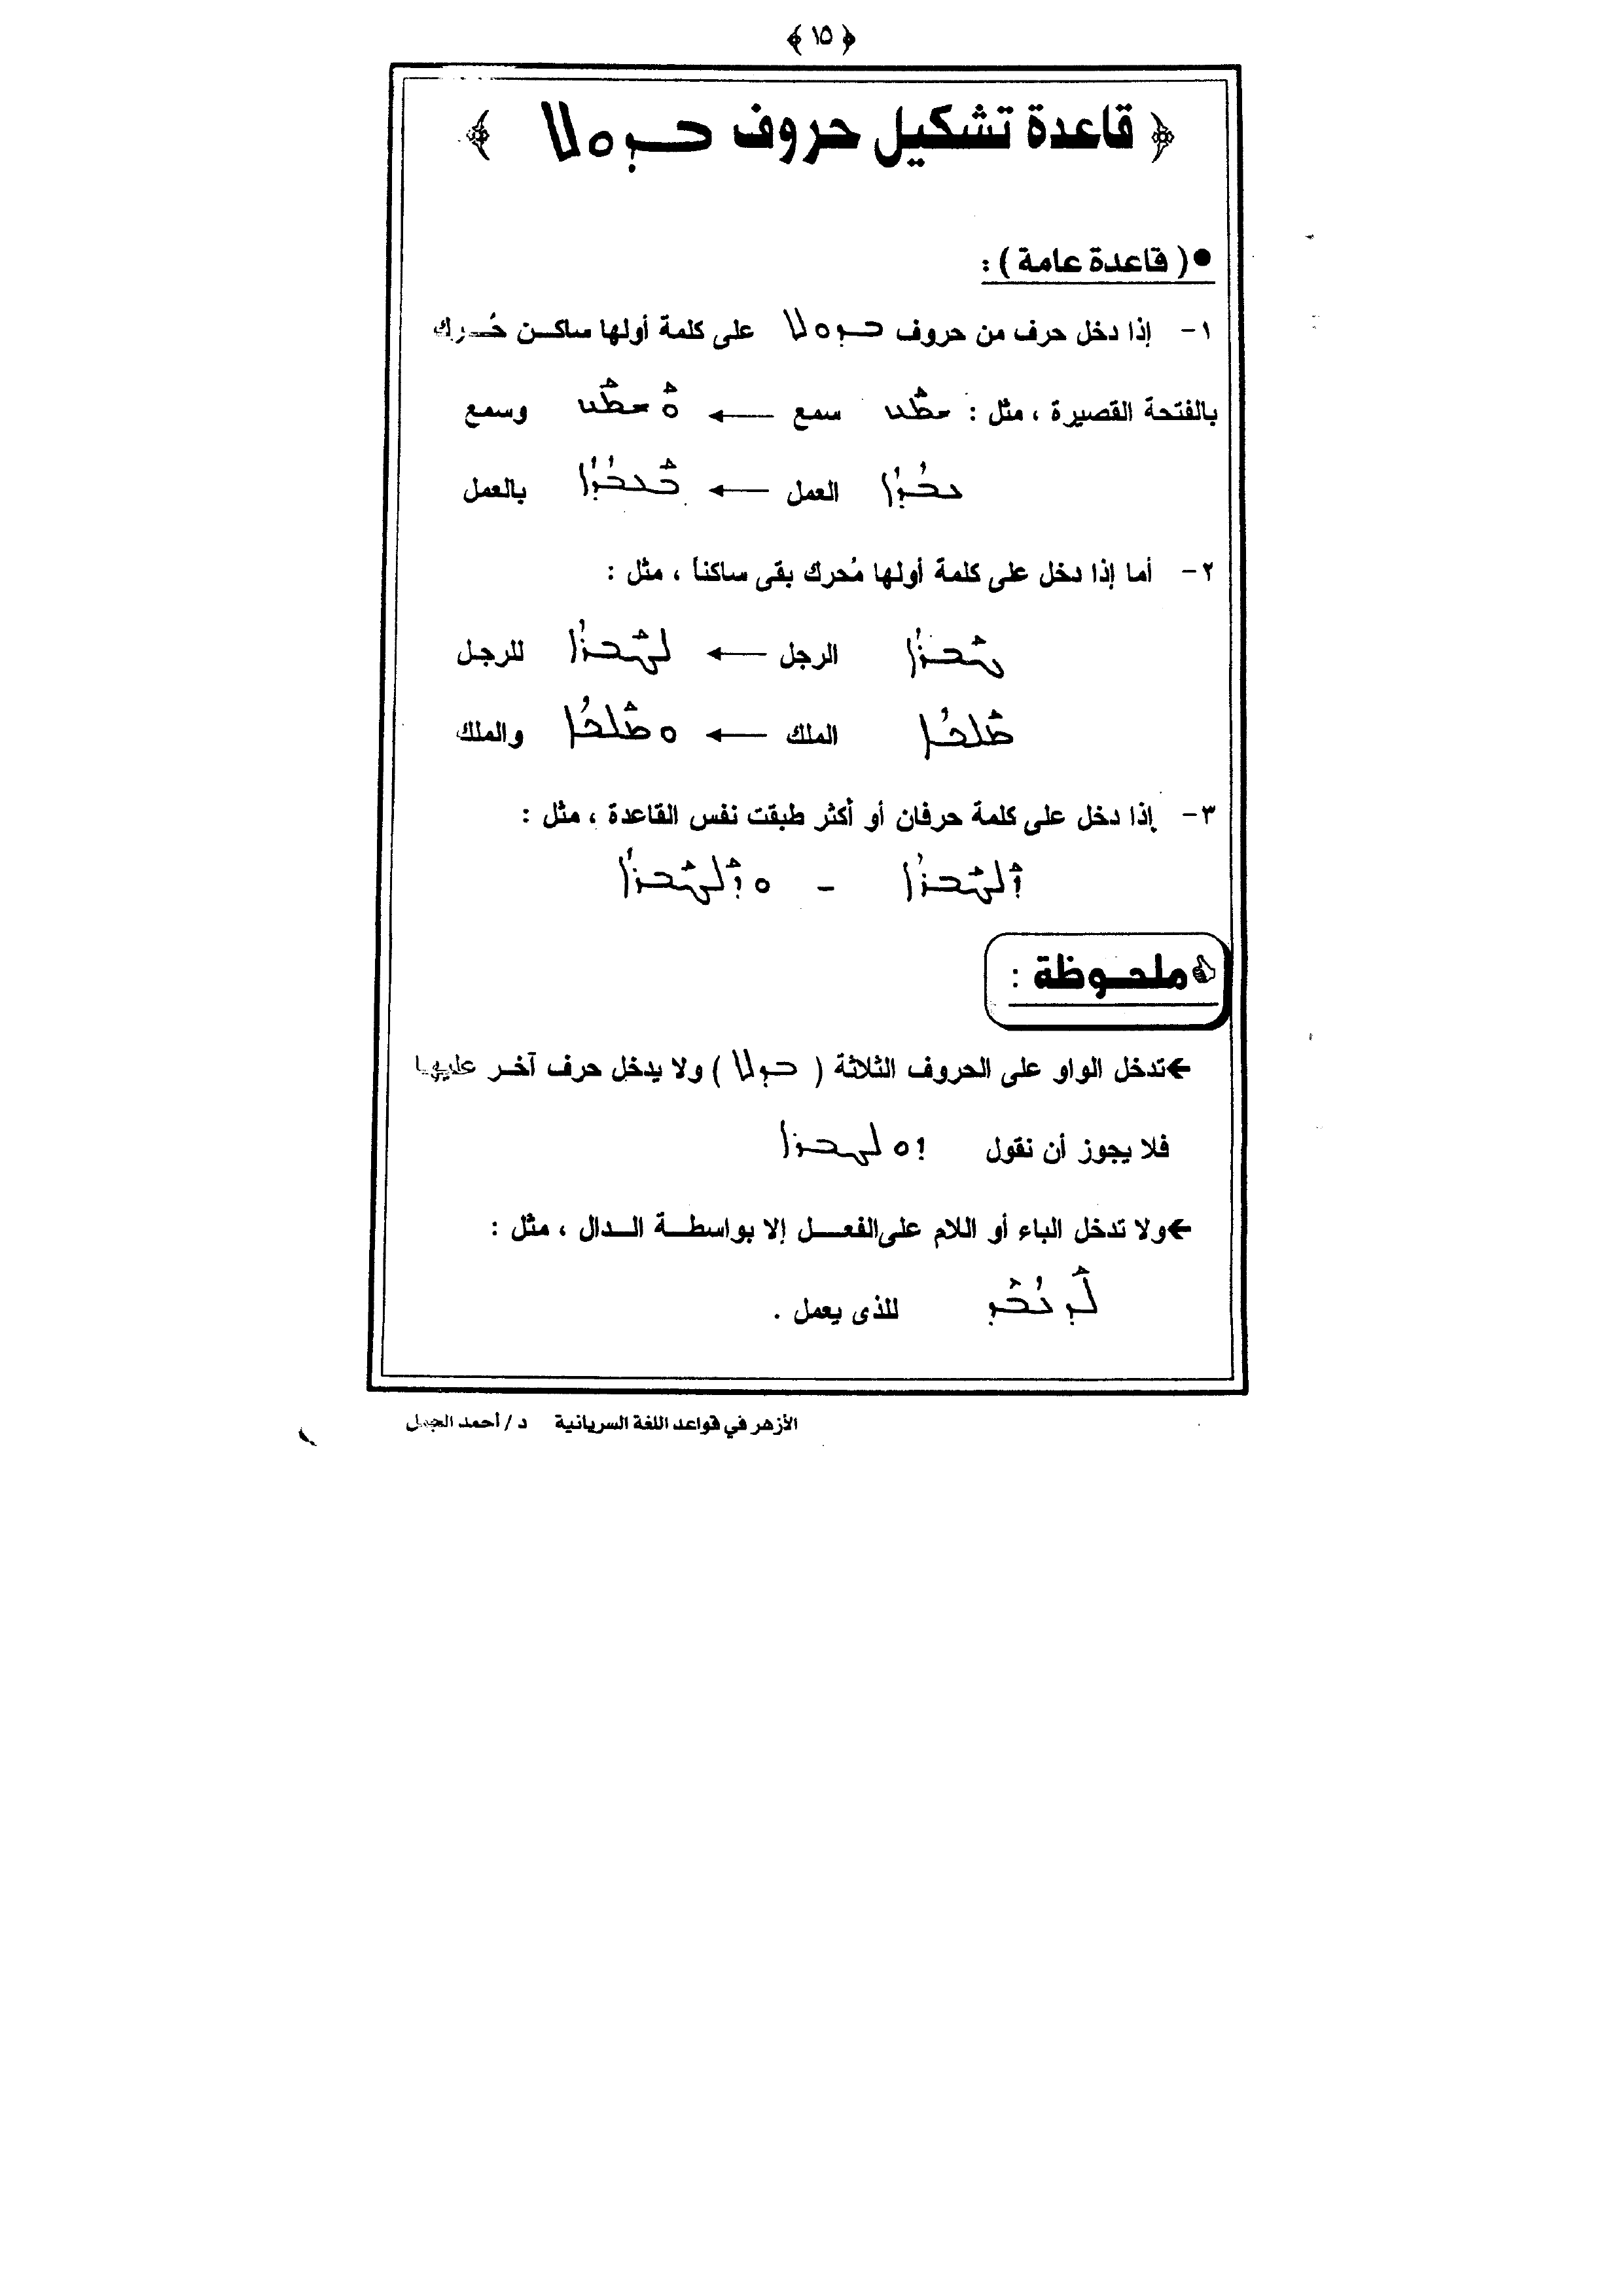 ﴿ ١٥ ﴾
﴿ قاعدة تشكيل حروف ܒܕܘܠ ﴾
● ( قاعدة عامة ) :
١- إذا دخل حرف من حروف ܒܕܘܠ على كلمة أولها ساكـن حُـرك
بالفتحة القصيرة ، مثل : ܫܡܰܥ سمع ← ܘܰܫܡܰܥ وسمع
ܥܒܳܕܳܐ العمل ← ܒܰܥܒܳܕܳܐ بالعمل
٢- أما إذا دخل على كلمة أولها مُحرك بقى ساكناً ، مثل :
ܓܰܒܪܳܐ الرجل ← ܠܓܰܒܪܳܐ للرجل
ܡܰܠܟܳܐ الملك ← ܘܡܰܠܟܳܐ والملك
٣- إذا دخل على كلمة حرفان أو أكثر طبقت نفس القاعدة ، مثل :
ܕܰܠܓܰܒܪܳܐ - ܘܕܰܠܓܰܒܪܳܐ
ملحـوظة :
←تدخل الواو على الحروف الثلاثة ( ܒܕܠ ) ولا يدخل حرف آخـر عليها
فلا يجوز أن نقول ܕܘܠܓܒܪܐ
←ولا تدخل الباء أو اللام على الفعـل إلا بواسطـة الـدال ، مثل :
ܠܰܕ ܥܳܒܰܕ للذى يعمل .
الأزهر في قواعد اللغة السريانية د/ أحمد الجمل